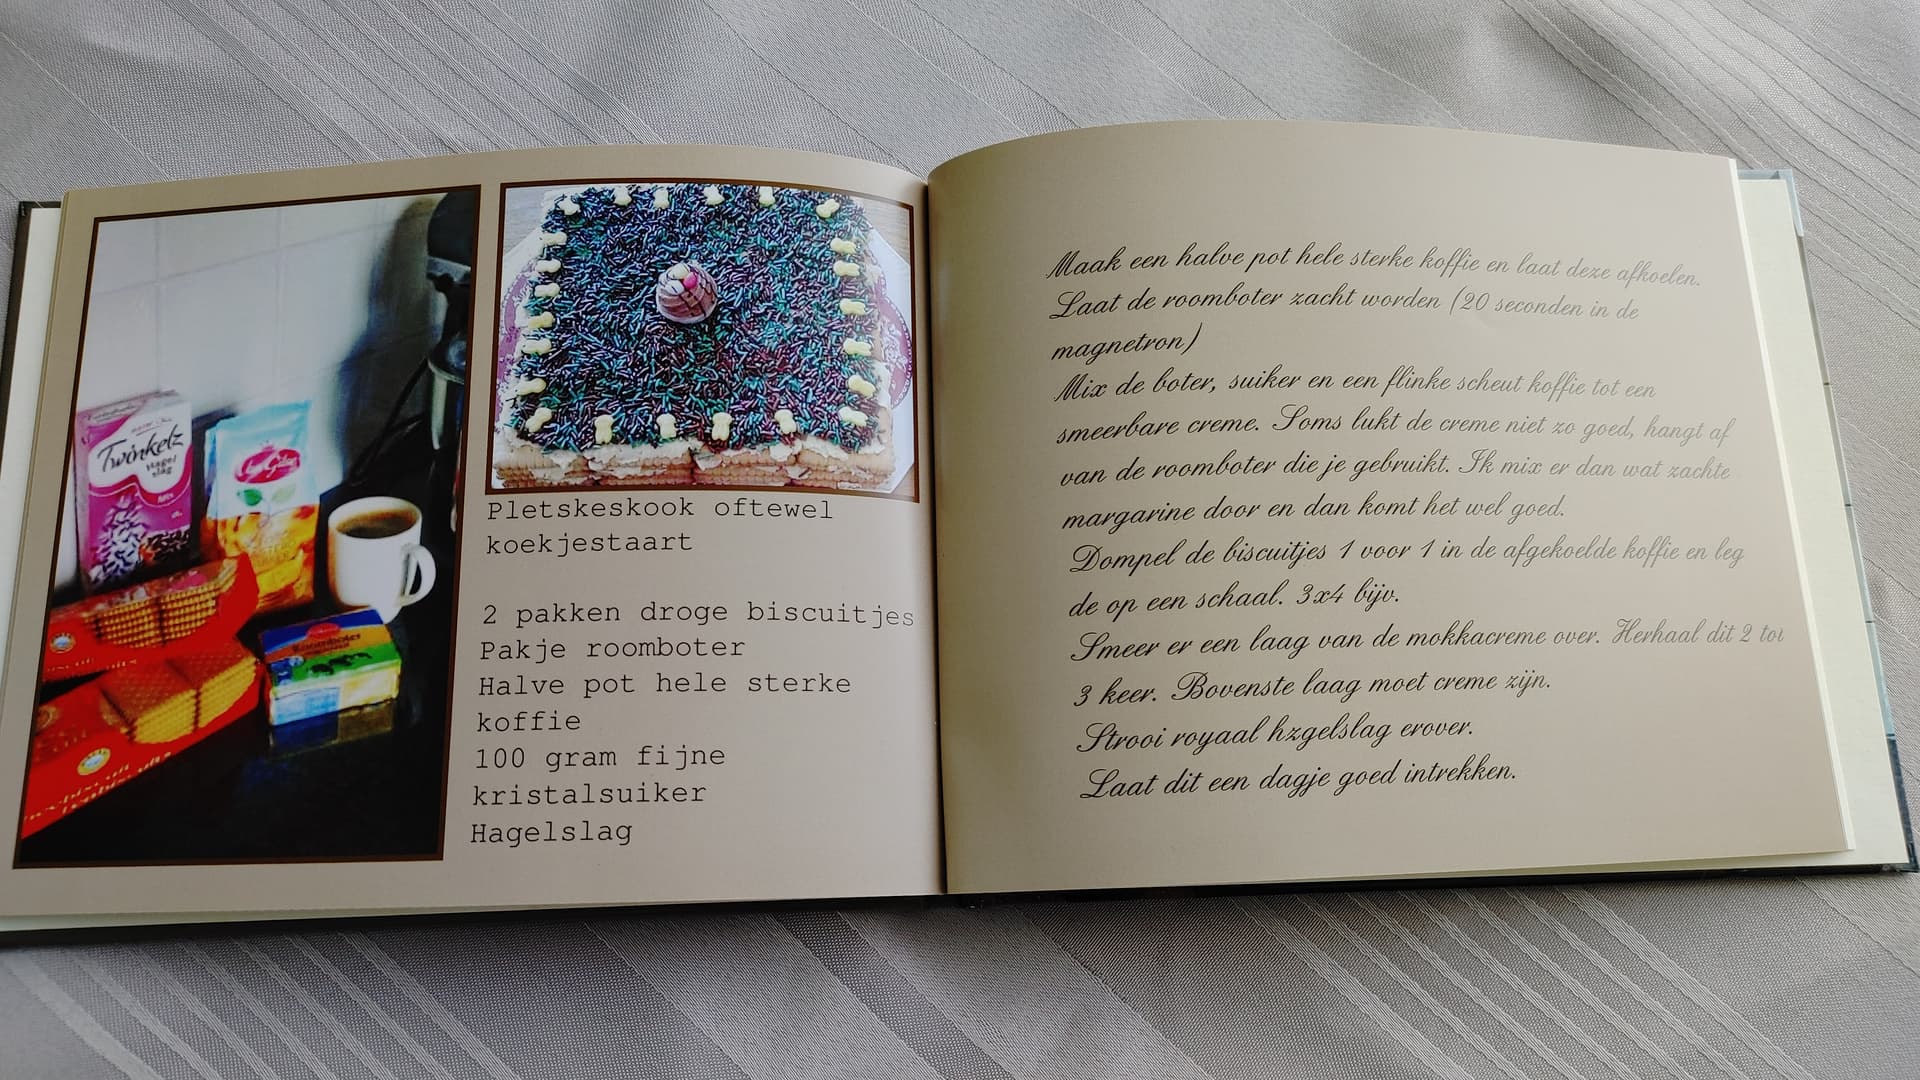 Twinkelz
Hagel
slag
Pletskeskook oftewel
koekjestaart
2 pakken droge biscuitjes
Pakje roomboter
Halve pot hele sterke
koffie
100 gram fijne
kristalsuiker
Hagelslag
Maak een halve pot hele sterke koffie en laat deze afkoelen.
Laat de roomboter zacht worden (20 seconden in de
magnetron)
Mix de boter, suiker en een flinke scheut koffie tot een
smeerbare creme. Soms lukt de creme niet zo goed, hangt af
van de roomboter die je gebruikt. Ik mix er dan wat zachte
margarine door en dan komt het wel goed.
Dompel de biscuitjes 1 voor 1 in de afgekoelde koffie en leg
de op een schaal. 3x4 bijv.
Smeer er een laag van de mokkacreme over. Herhaal dit 2 tot
3 keer. Bovenste laag moet creme zijn.
Strooi royaal hzgelslag erover.
Laat dit een dagje goed intrekken.